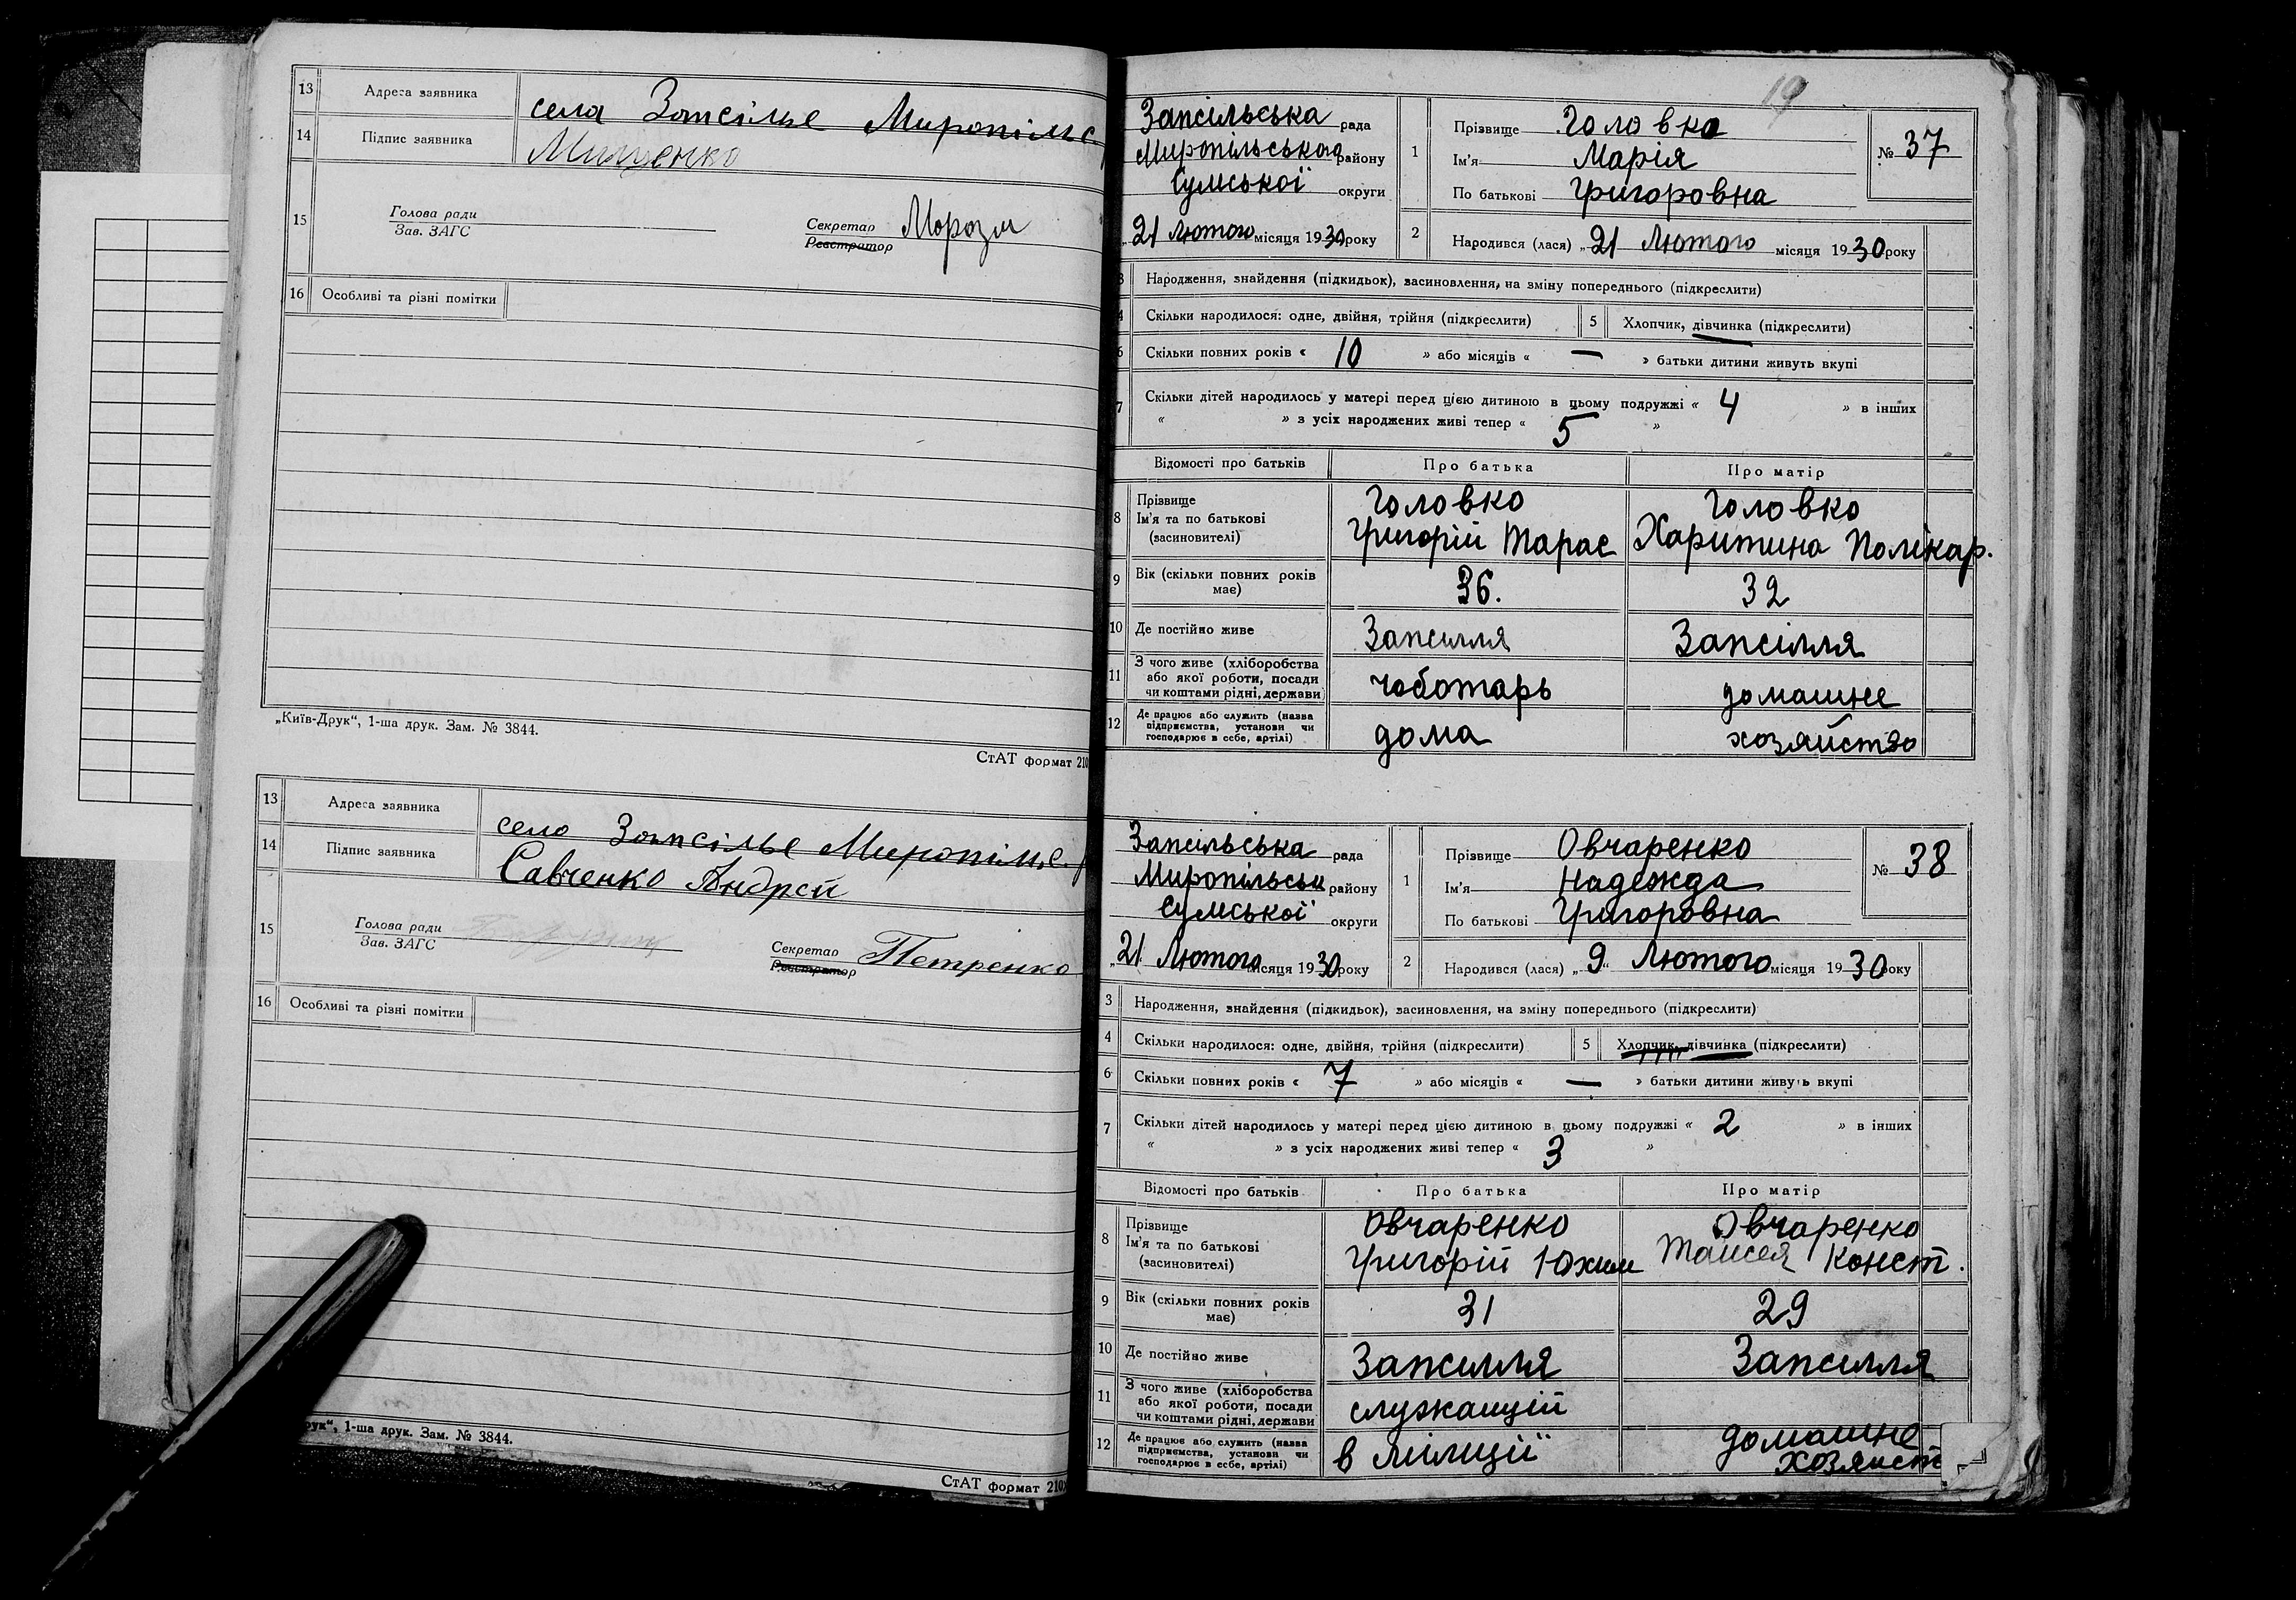 13 Адреса заявника села Запсілье Миропільс
14 Підпис заявника Мищенко
15 Голова ради
Зав. ЗАГС
Секретар
Реєстратор
16 Особливі та різні помітки
„Київ-Друк“, 1-ша друк. Зам. № 3844.
СтАТ формат 210
13 Адреса заявника село Запсілье Миропільс
14 Підпис заявника Савченко Андрей
15 Голова ради
Зав. ЗАГС
Секретар Петренко
Реєстратор
16 Особливі та різні помітки
рук“, 1-ша друк. Зам. № 3844.
СтАТ формат 210
19
Запсільська рада
Миропільського району
Сумської округи
„21 Лютого місяця 1930 року
1 Прізвище Головко
Ім'я Марія
По батькові Григоровна
№ 37
2 Народився (лася) „21 Лютого місяця 1930 року
3 Народження, знайдення (підкидьок), засиновлення, на зміну попереднього (підкреслити)
4 Скільки народилося: одне, двійня, трійня (підкреслити) 5 Хлопчик, дівчинка (підкреслити)
6 Скільки повних років « 10 » або місяців « — » батьки дитини живуть вкупі
7 Скільки дітей народилось у матері перед цією дитиною в цьому подружжі « 4 » в інших
« » з усіх народжених живі тепер « 5 »
Відомості про батьків Про батька Про матір
8 Прізвище Головко Головко
Ім'я та по батькові Григорій Тарас Харитина Полікар.
(засиновителі)
9 Вік (скільки повних років має) 36. 32
10 Де постійно живе Запсилля Запсілля
11 З чого живе (хліборобства
або якої роботи, посади
чи коштами рідні, держави) чоботарь домашне
12 Де працює або служить (назва
підприємства, установи чи
господарює в себе, артілі) дома хозяйство
Запсільська рада
Миропільськ району
Сумської округи
„21 Лютого місяця 1930 року
1 Прізвище Овчаренко
Ім'я Надежда
По батькові Григоровна
№ 38
2 Народився (лася) „9“ Лютого місяця 1930 року
3 Народження, знайдення (підкидьок), засиновлення, на зміну попереднього (підкреслити)
4 Скільки народилося: одне, двійня, трійня (підкреслити) 5 Хлопчик, дівчинка (підкреслити)
6 Скільки повних років « 7 » або місяців « — » батьки дитини живуть вкупі
7 Скільки дітей народилось у матері перед цією дитиною в цьому подружжі « 2 » в інших
« » з усіх народжених живі тепер « 3 »
Відомості про батьків Про батька Про матір
8 Прізвище Овчаренко Овчаренко
Ім'я та по батькові Григорій Юхим Таисея Конст.
(засиновителі)
9 Вік (скільки повних років має) 31 29
10 Де постійно живе Запсилля Запсилля
11 З чого живе (хліборобства
або якої роботи, посади
чи коштами рідні, держави) служащій
12 Де працює або служить (назва
підприємства, установи чи
господарює в себе, артілі) в міліції домашне
хозяйст